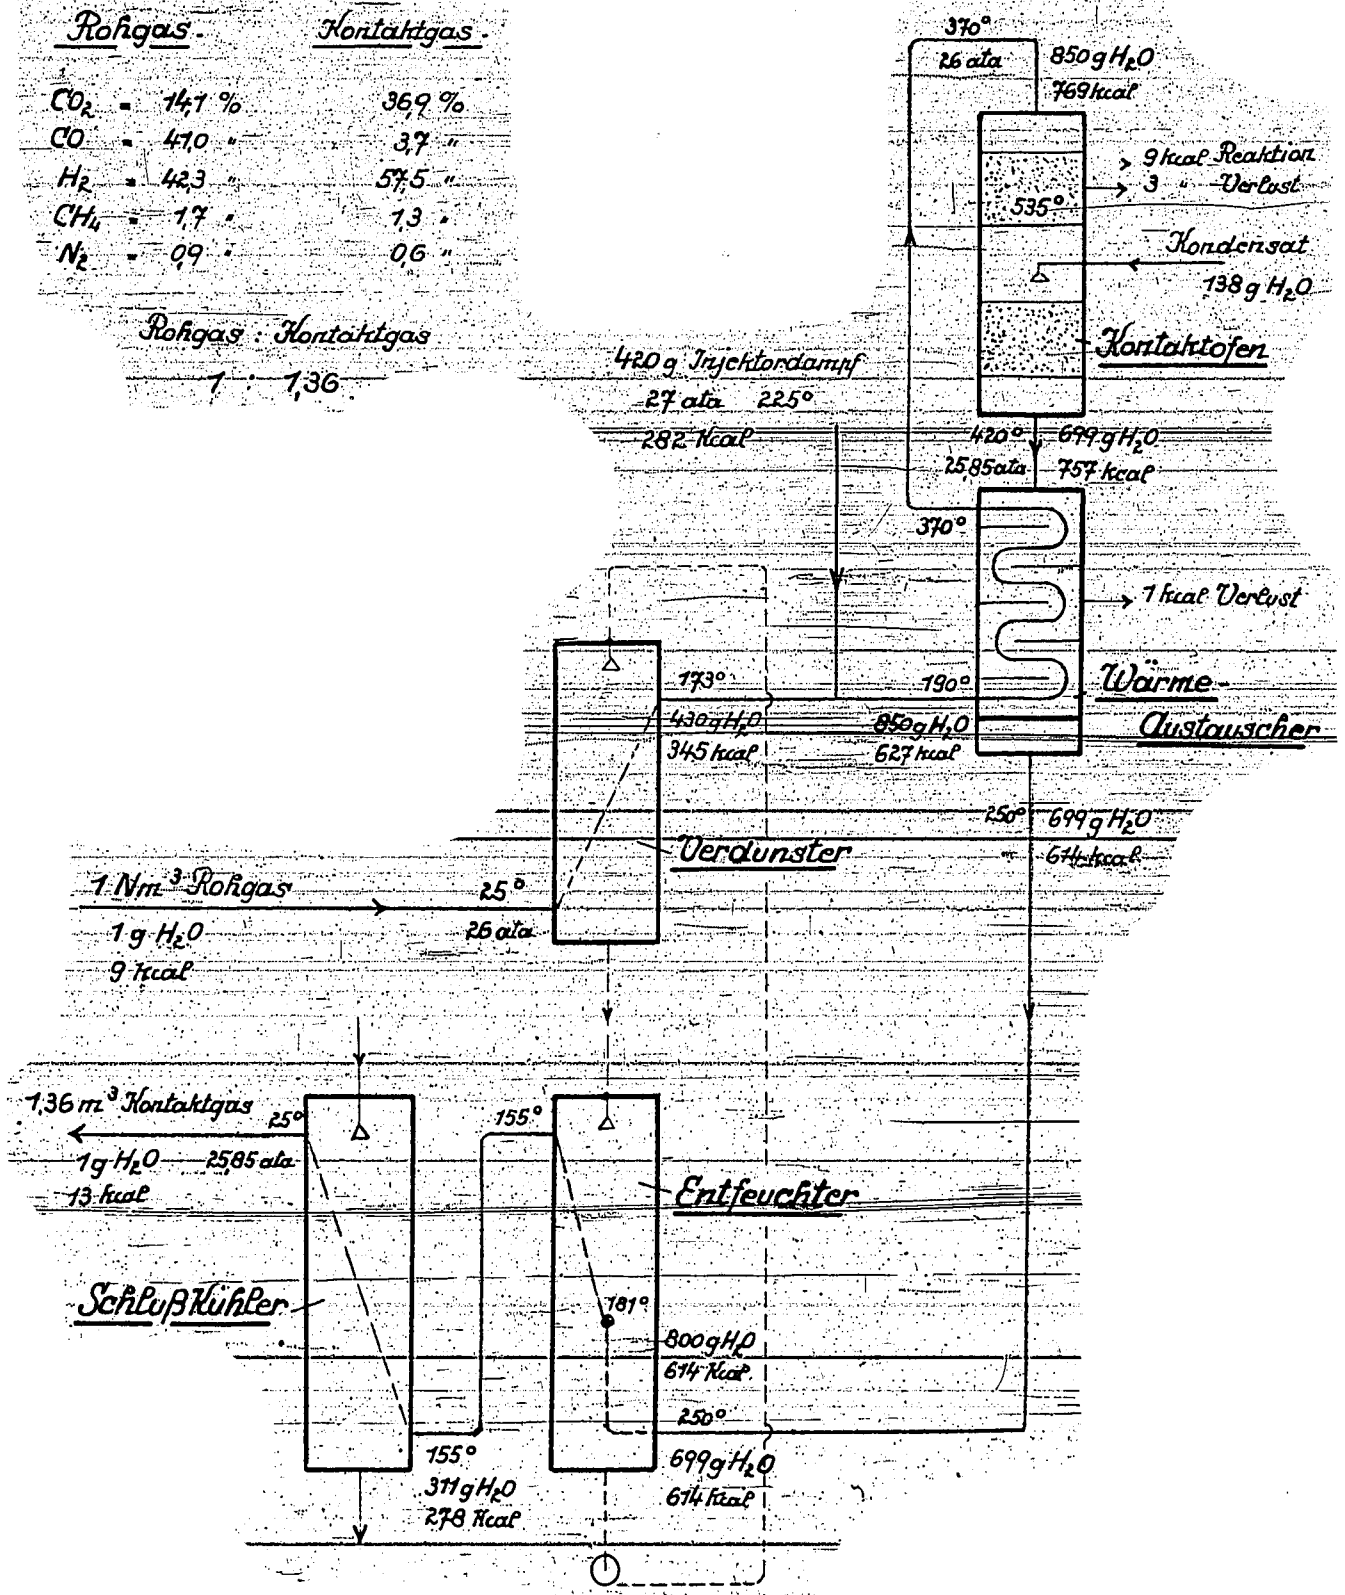 Rohgas. Kontaktgas.
CO₂ = 14,1 % 36,9 %
CO = 41,0 " 3,7 "
H₂ = 42,3 " 57,5 "
CH₄ = 1,7 " 1,3 "
N₂ = 0,9 " 0,6 "
Rohgas : Kontaktgas
1 : 1,36
370°
26 ata
850 g H₂O
769 kcal
9 kcal Reaktion
3 " Verlust
535°
Kondensat
138 g H₂O
Kontaktofen
420 g Injektordampf
27 ata 225°
282 Kcal
420° 699 g H₂O
25,85 ata 757 kcal
370°
1 kcal Verlust
173°
190°
Wärme-
Austauscher
430 g H₂O
345 kcal
850 g H₂O
627 kcal
250° 699 g H₂O
614 kcal
Verdunster
1 Nm³ Rohgas
25°
1 g H₂O
26 ata
9 kcal
1,36 m³ Kontaktgas
25°
155°
1 g H₂O 25,85 ata
13 kcal
Entfeuchter
Schlußkühler
181°
800 g H₂O
614 Kcal.
250°
155°
311 g H₂O
278 Kcal
699 g H₂O
614 kcal